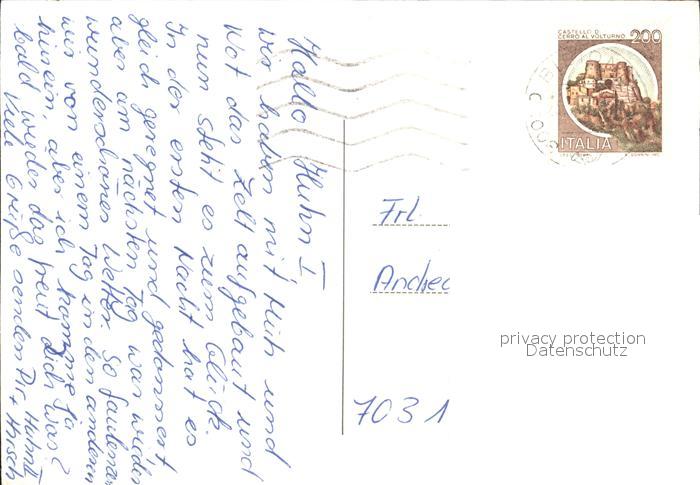 Hallo Huhn I,
wir haben mit Müh und
Not das Zelt aufgebaut und
nun steht es zum Glück.
In der ersten Nacht hat es
gleich geregnet und gedonnert,
aber am nächsten Tag war wieder
wunderschönes Wetter. So faulenzen
wir von einem Tag in den anderen
hinein, aber ich komme ja
bald wieder das freut dich was?
Viele Grüße senden Dir Huhn II
+ Hirsch
CASTELLO D.
CERRO AL VOLTURNO 200
ITALIA
Frl.
Andrec
7031
privacy protection
Datenschutz